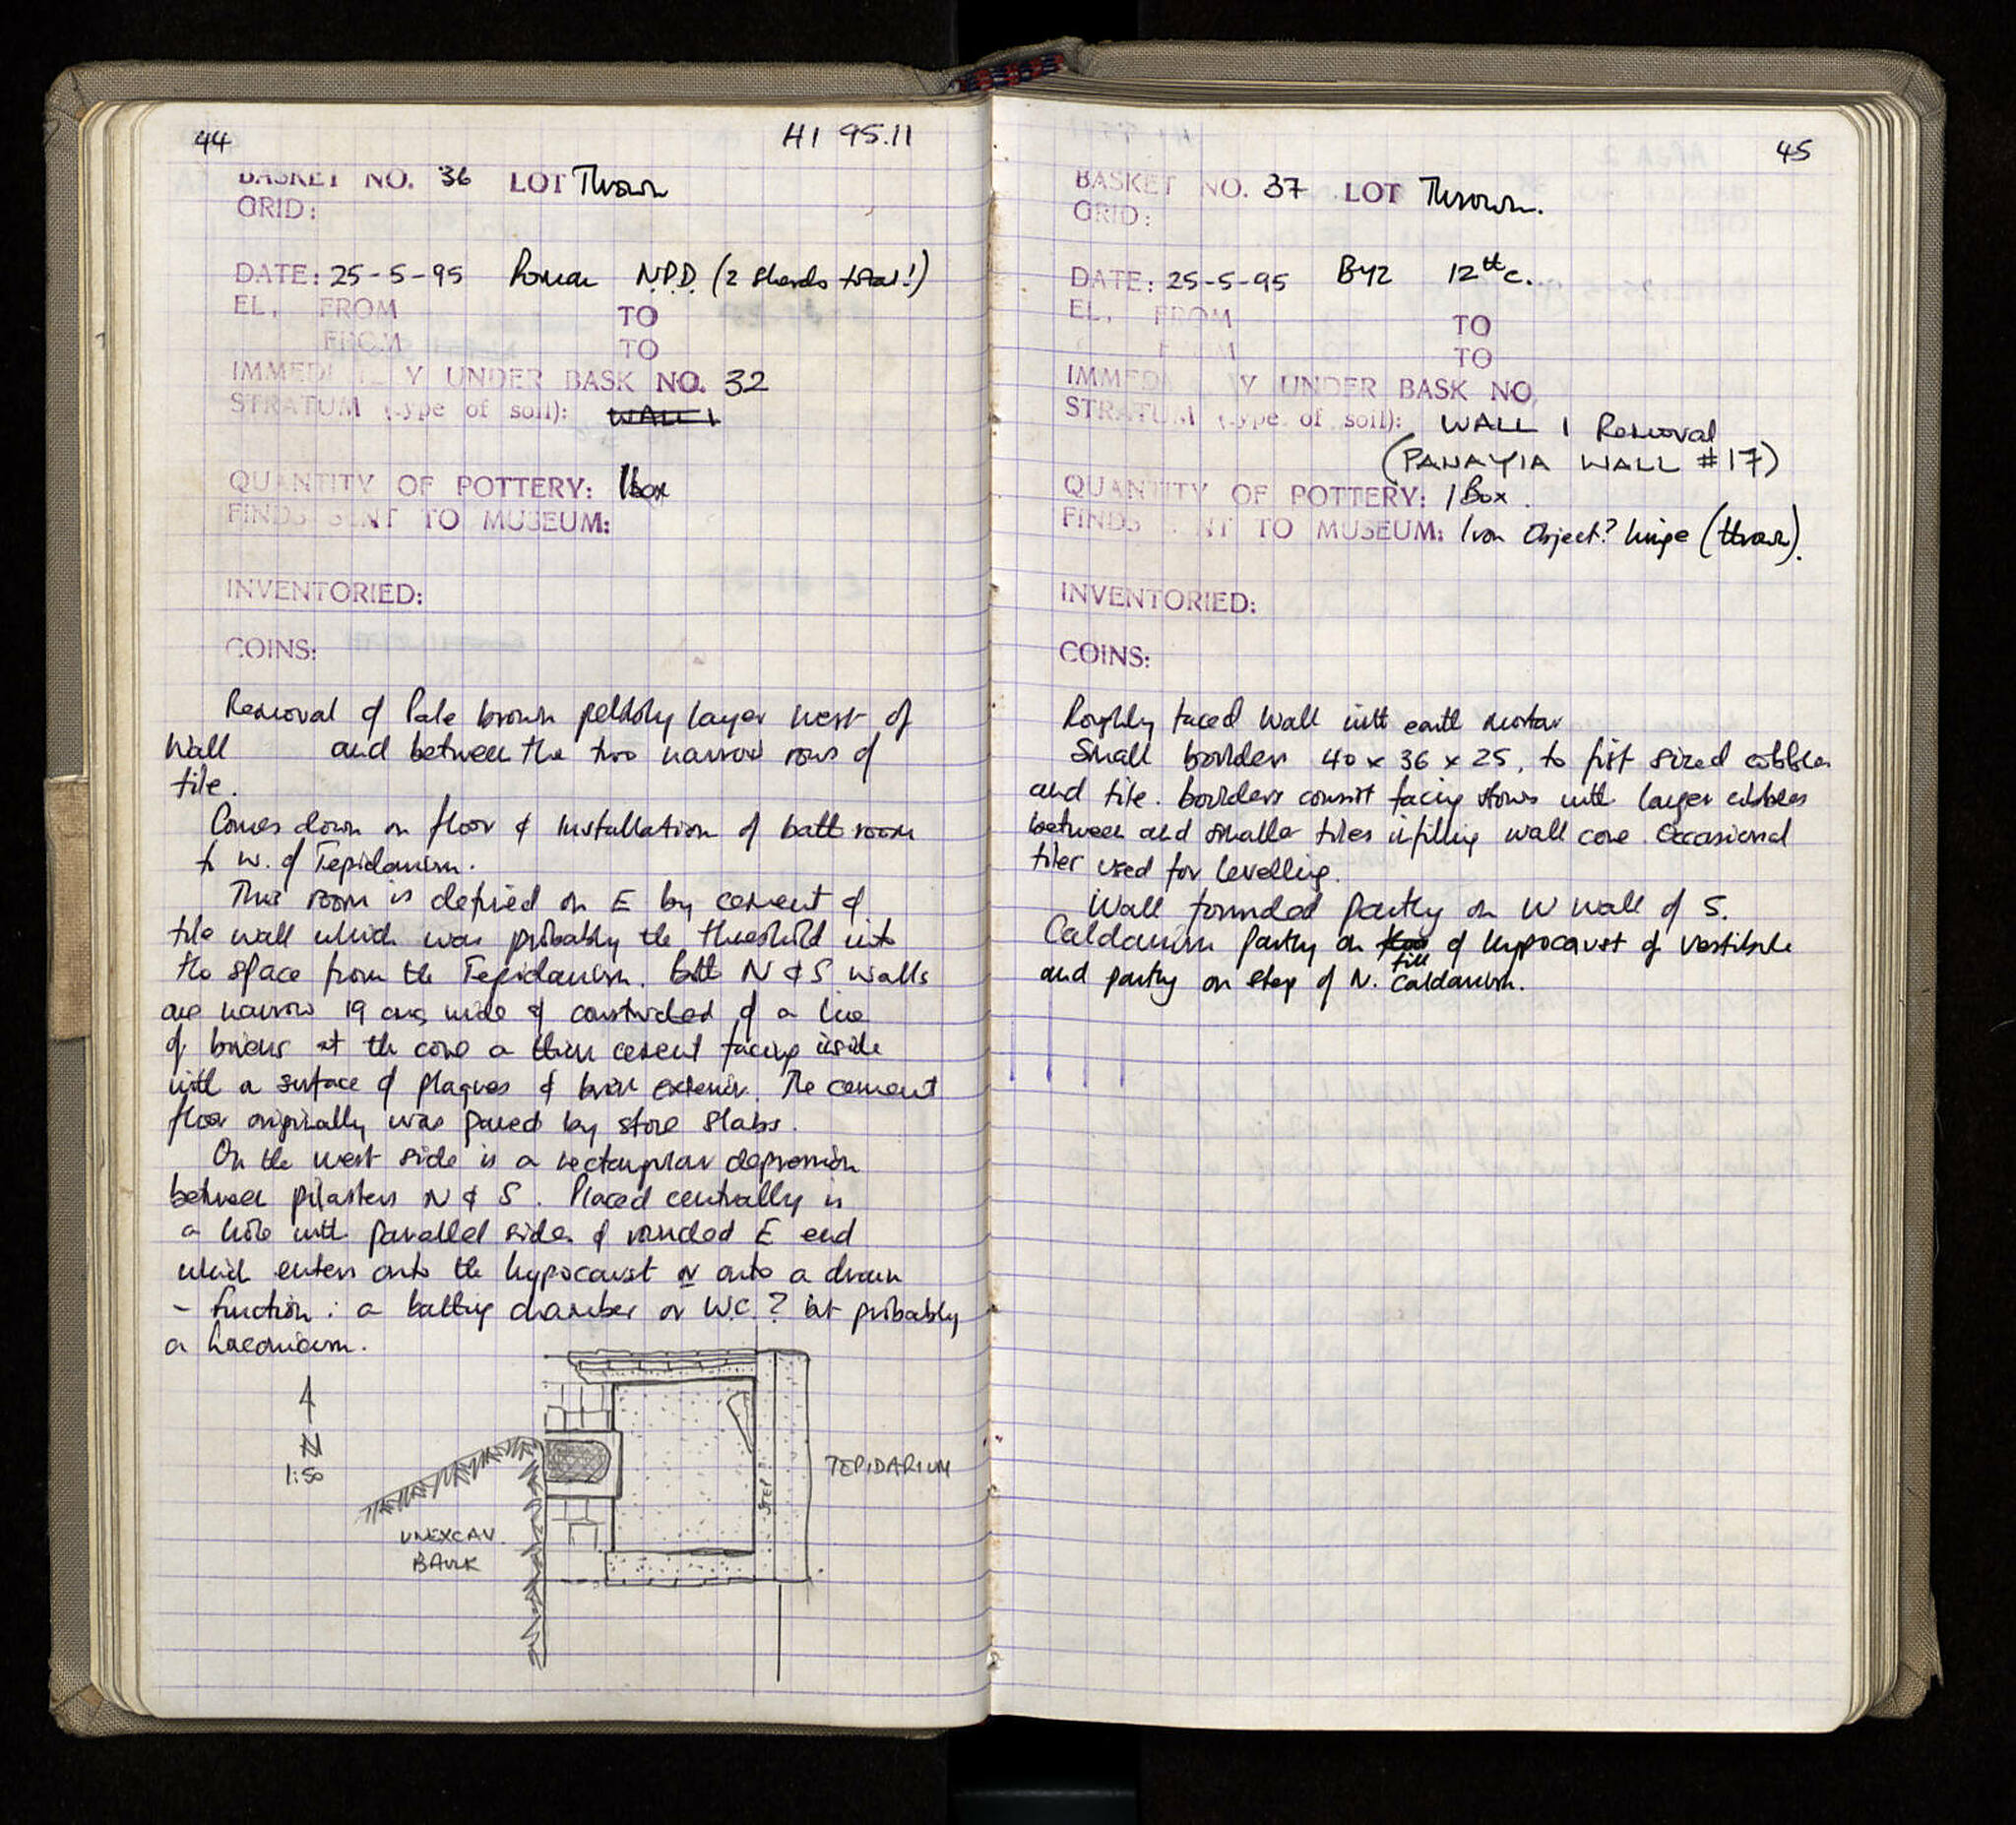 44
H1 95.11
BASKET NO. 36 LOT Thrown
GRID:
DATE: 25-5-95 Roman N.P.D. (2 sherds total!)
EL, FROM TO
FROM TO
IMMEDI Y UNDER BASK NO. 32
STRATUM (type of soil): WALL 1
QUANTITY OF POTTERY: 1 box
FINDS SENT TO MUSEUM:
INVENTORIED:
COINS:
Removal of Pale brown pebbly layer west of
Wall and between the two narrow rows of
tile.
Comes down on floor & installation of bath room
to W. of Tepidarium.
This room is defined on E by cement &
tile wall which was probably the threshold into
the space from the Tepidarium. Both N & S walls
are narrow 19 cms wide & constructed of a line
of bricks at the core a thin cement facing inside
with a surface of plaques & brick exterior. The cement
floor originally was paved by stone slabs.
On the west side is a rectangular depression
between pilasters N & S. Placed centrally is
a hole with parallel sides & rounded E end
which enters onto the hypocaust or onto a drain
- function: a bathing chamber or W.C.? but probably
a Laconicum.
N
1:50
UNEXCAV.
BAULK
STEP
TEPIDARIUM
45
BASKET NO. 37 LOT Thrown.
GRID:
DATE: 25-5-95 BYZ 12th c.
EL, FROM TO
TO
IMMED Y UNDER BASK NO.
STRATUM (type of soil): WALL 1 Removal
(PANAYIA WALL #17)
QUANTITY OF POTTERY: 1 Box.
FINDS NT TO MUSEUM: Iron Object? hinge (thrown).
INVENTORIED:
COINS:
Roughly faced Wall with earth mortar
Small boulders 40 x 36 x 25, to fist sized cobbles
and tile. boulders consist facing stones with larger cobbles
between and smaller tiles infilling wall core. Occasional
tiles used for levelling.
Wall founded partly on W wall of S.
Caldarium partly on fill of hypocaust of vestibule
and partly on step of N. Caldarium.